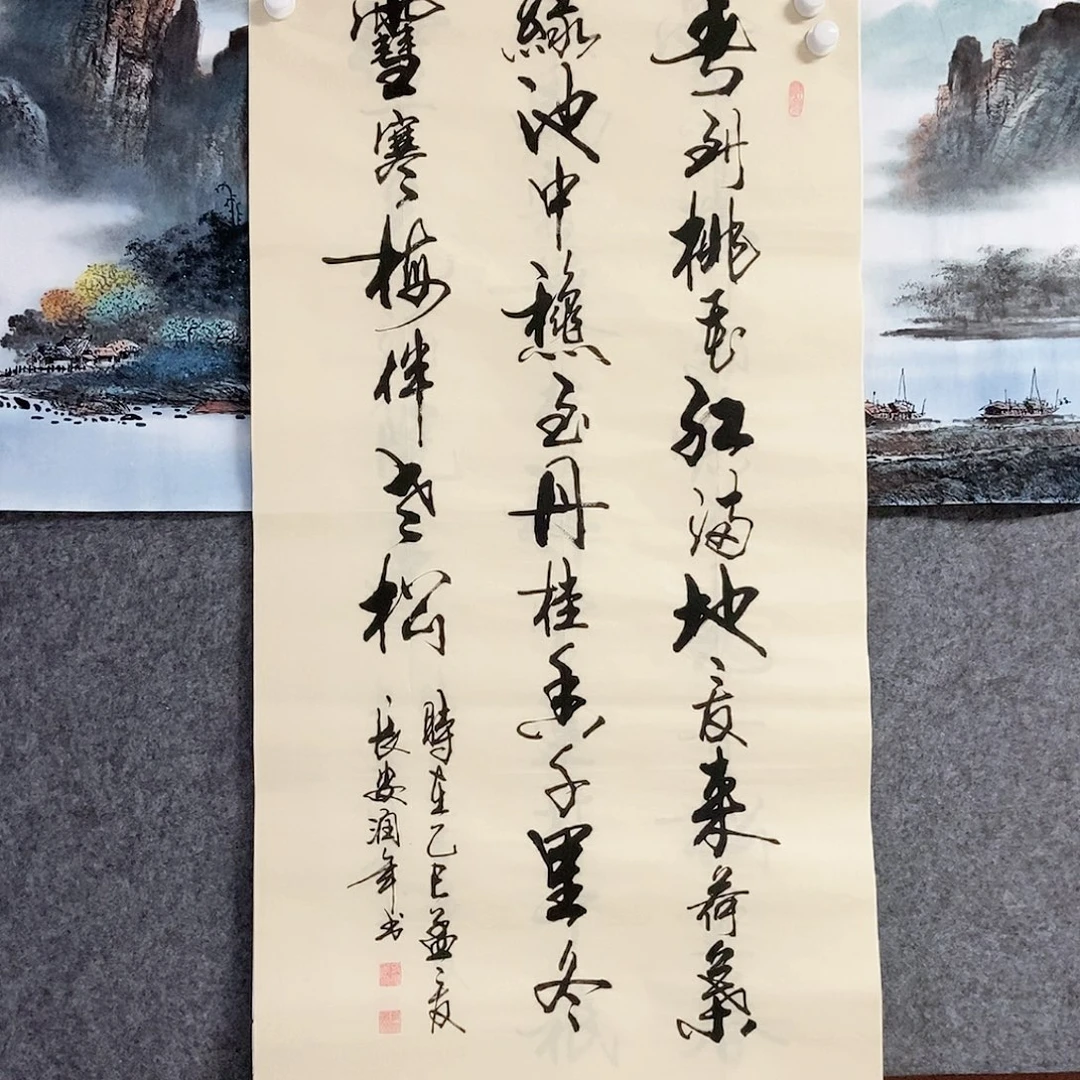 春到桃花红满地夏来荷葉
緑池中龝至丹桂香千里冬
雪寒梅伴老松
時在乙巳孟夏
长安润年书